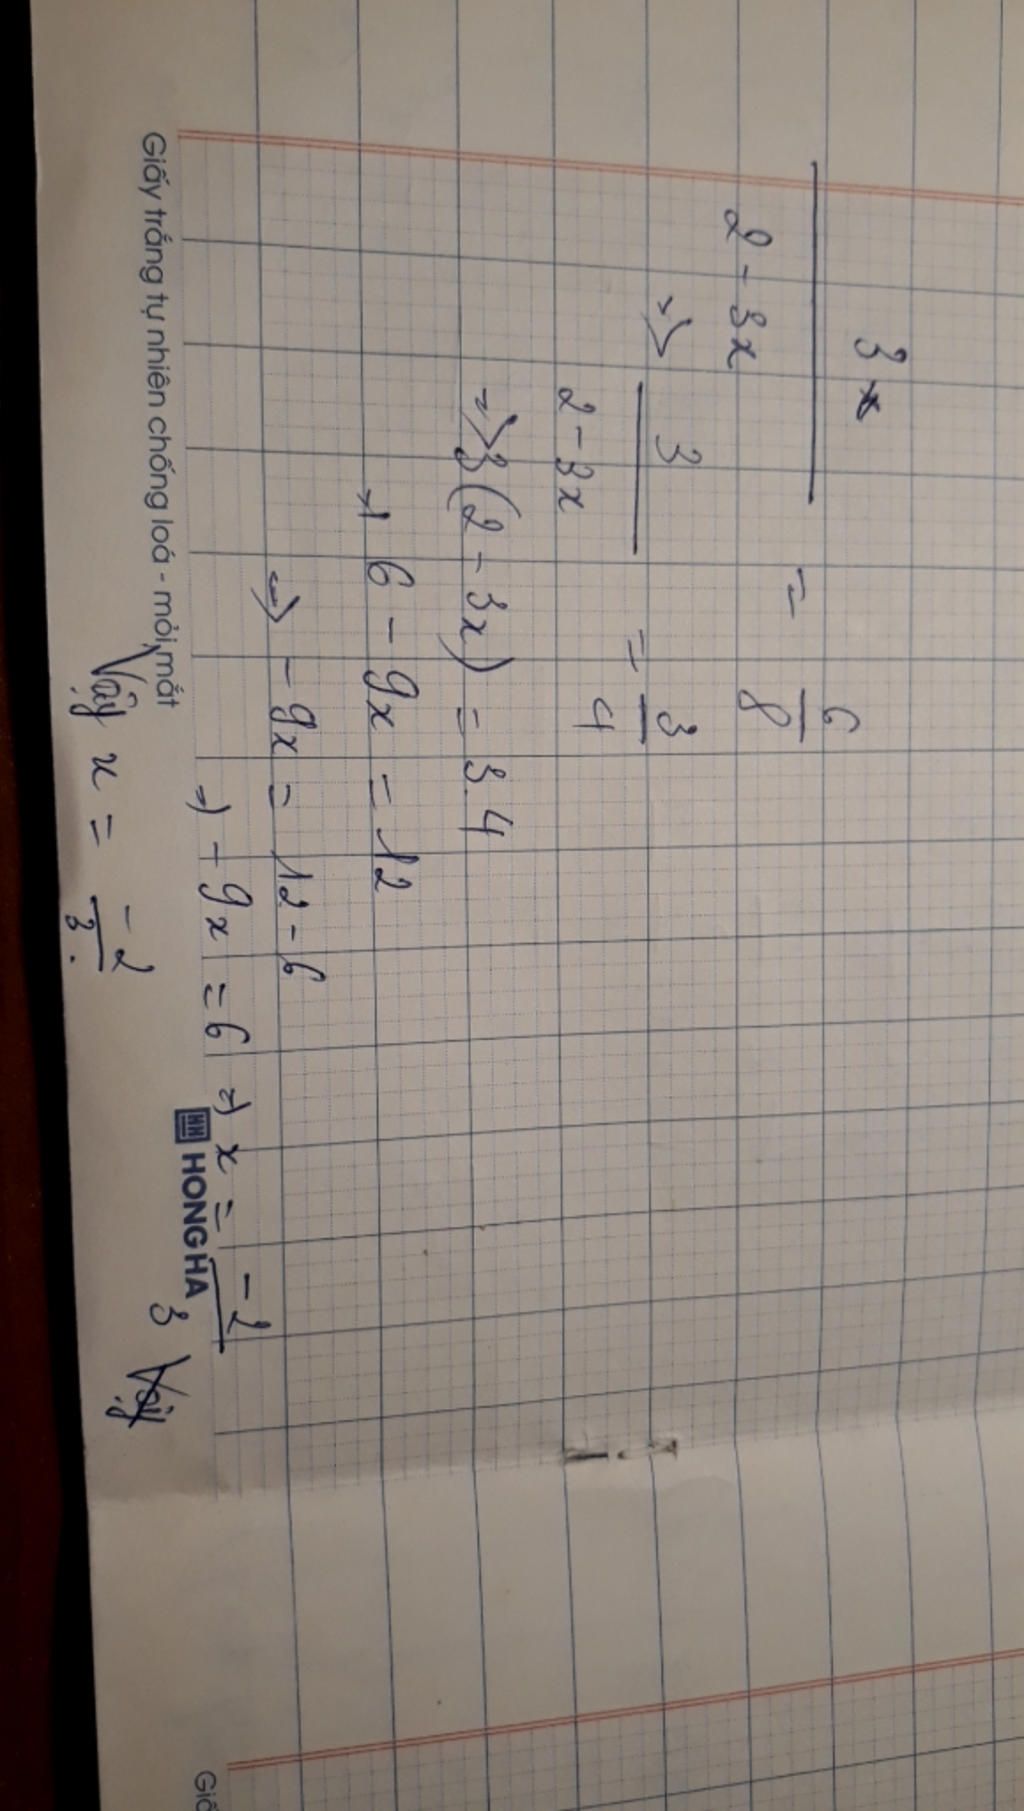 3
2 - 3x = 6/8
=> 3/(2 - 3x) = 3/4
=> 3(2 - 3x) = 3.4
=> 6 - 9x = 12
=> - 9x = 12 - 6
=> - 9x = 6 => x = -2/3
Giấy trắng tự nhiên chống loá - mỏi mắt
HONG HA
Vậy x = -2/3.
Giấ